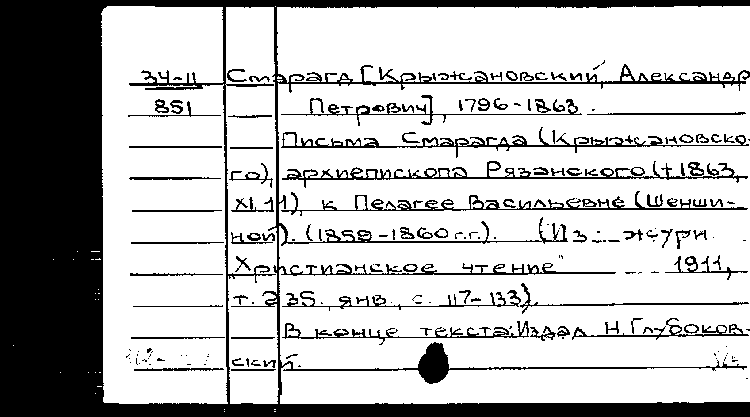 34-11 Смарагд [Крыжановский, Александр
851 Петрович], 1796-1863.
Письма Смарагда (Крыжановско-
го), архиепископа Рязанского (†1863,
XI.11), к Пелагее Васильевне (Шенши-
ной). (1859-1860 г.г.). (Из: журн.
"Христианское чтение" 1911,
т. 235. янв., с. 117-133).
В конце текста: Издал Н. Глубоков-
ский.